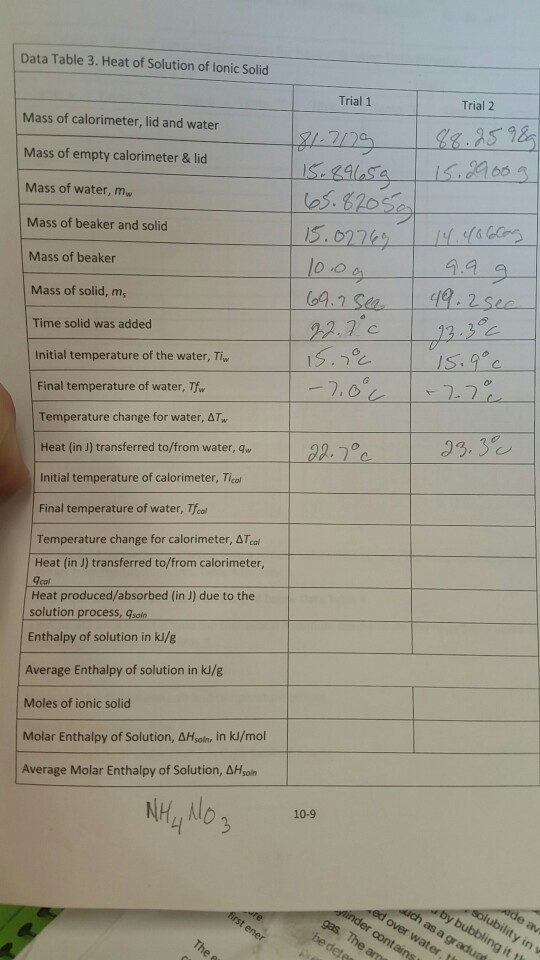 Data Table 3. Heat of Solution of Ionic Solid
Trial 1 Trial 2
Mass of calorimeter, lid and water 81.717g 88.2598g
Mass of empty calorimeter & lid 15.8965g 15.2900g
Mass of water, mw 65.8205g
Mass of beaker and solid 15.0276g
Mass of beaker 10.0 g 9.9 g
Mass of solid, ms 69.7 sec 49.2 sec
Time solid was added 22.7°c 23.3°c
Initial temperature of the water, Tiw 15.7°c 15.9°c
Final temperature of water, Tfw -7.0°c -7.7°c
Temperature change for water, ΔTw
Heat (in J) transferred to/from water, qw 22.7°c 23.3°c
Initial temperature of calorimeter, Tical
Final temperature of water, Tfcal
Temperature change for calorimeter, ΔTcal
Heat (in J) transferred to/from calorimeter,
qcal
Heat produced/absorbed (in J) due to the
solution process, qsoln
Enthalpy of solution in kJ/g
Average Enthalpy of solution in kJ/g
Moles of ionic solid
Molar Enthalpy of Solution, ΔHsoln, in kJ/mol
Average Molar Enthalpy of Solution, ΔHsoln
NH4NO3
10-9
first ener
The
gas. The
solubility in
by bubbling it
such as a graduat
ed over water,
contains